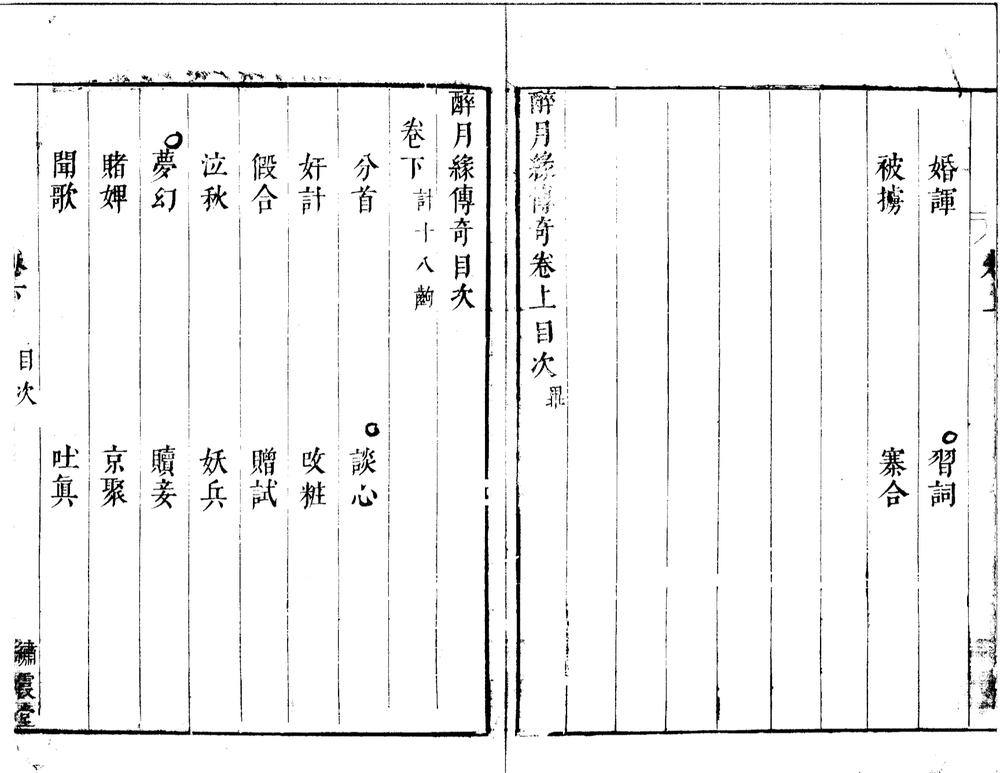 卷上
婚諢 習詞
被擄 寨合
醉月緣傳奇卷上目次 畢
醉月緣傳奇目次
卷下 計十八齣
分首 談心
奸計 改粧
假合 贈試
泣秋 妖兵
夢幻 贖妾
賭婢 京聚
聞歌 吐眞
卷下 目次 繡霞堂